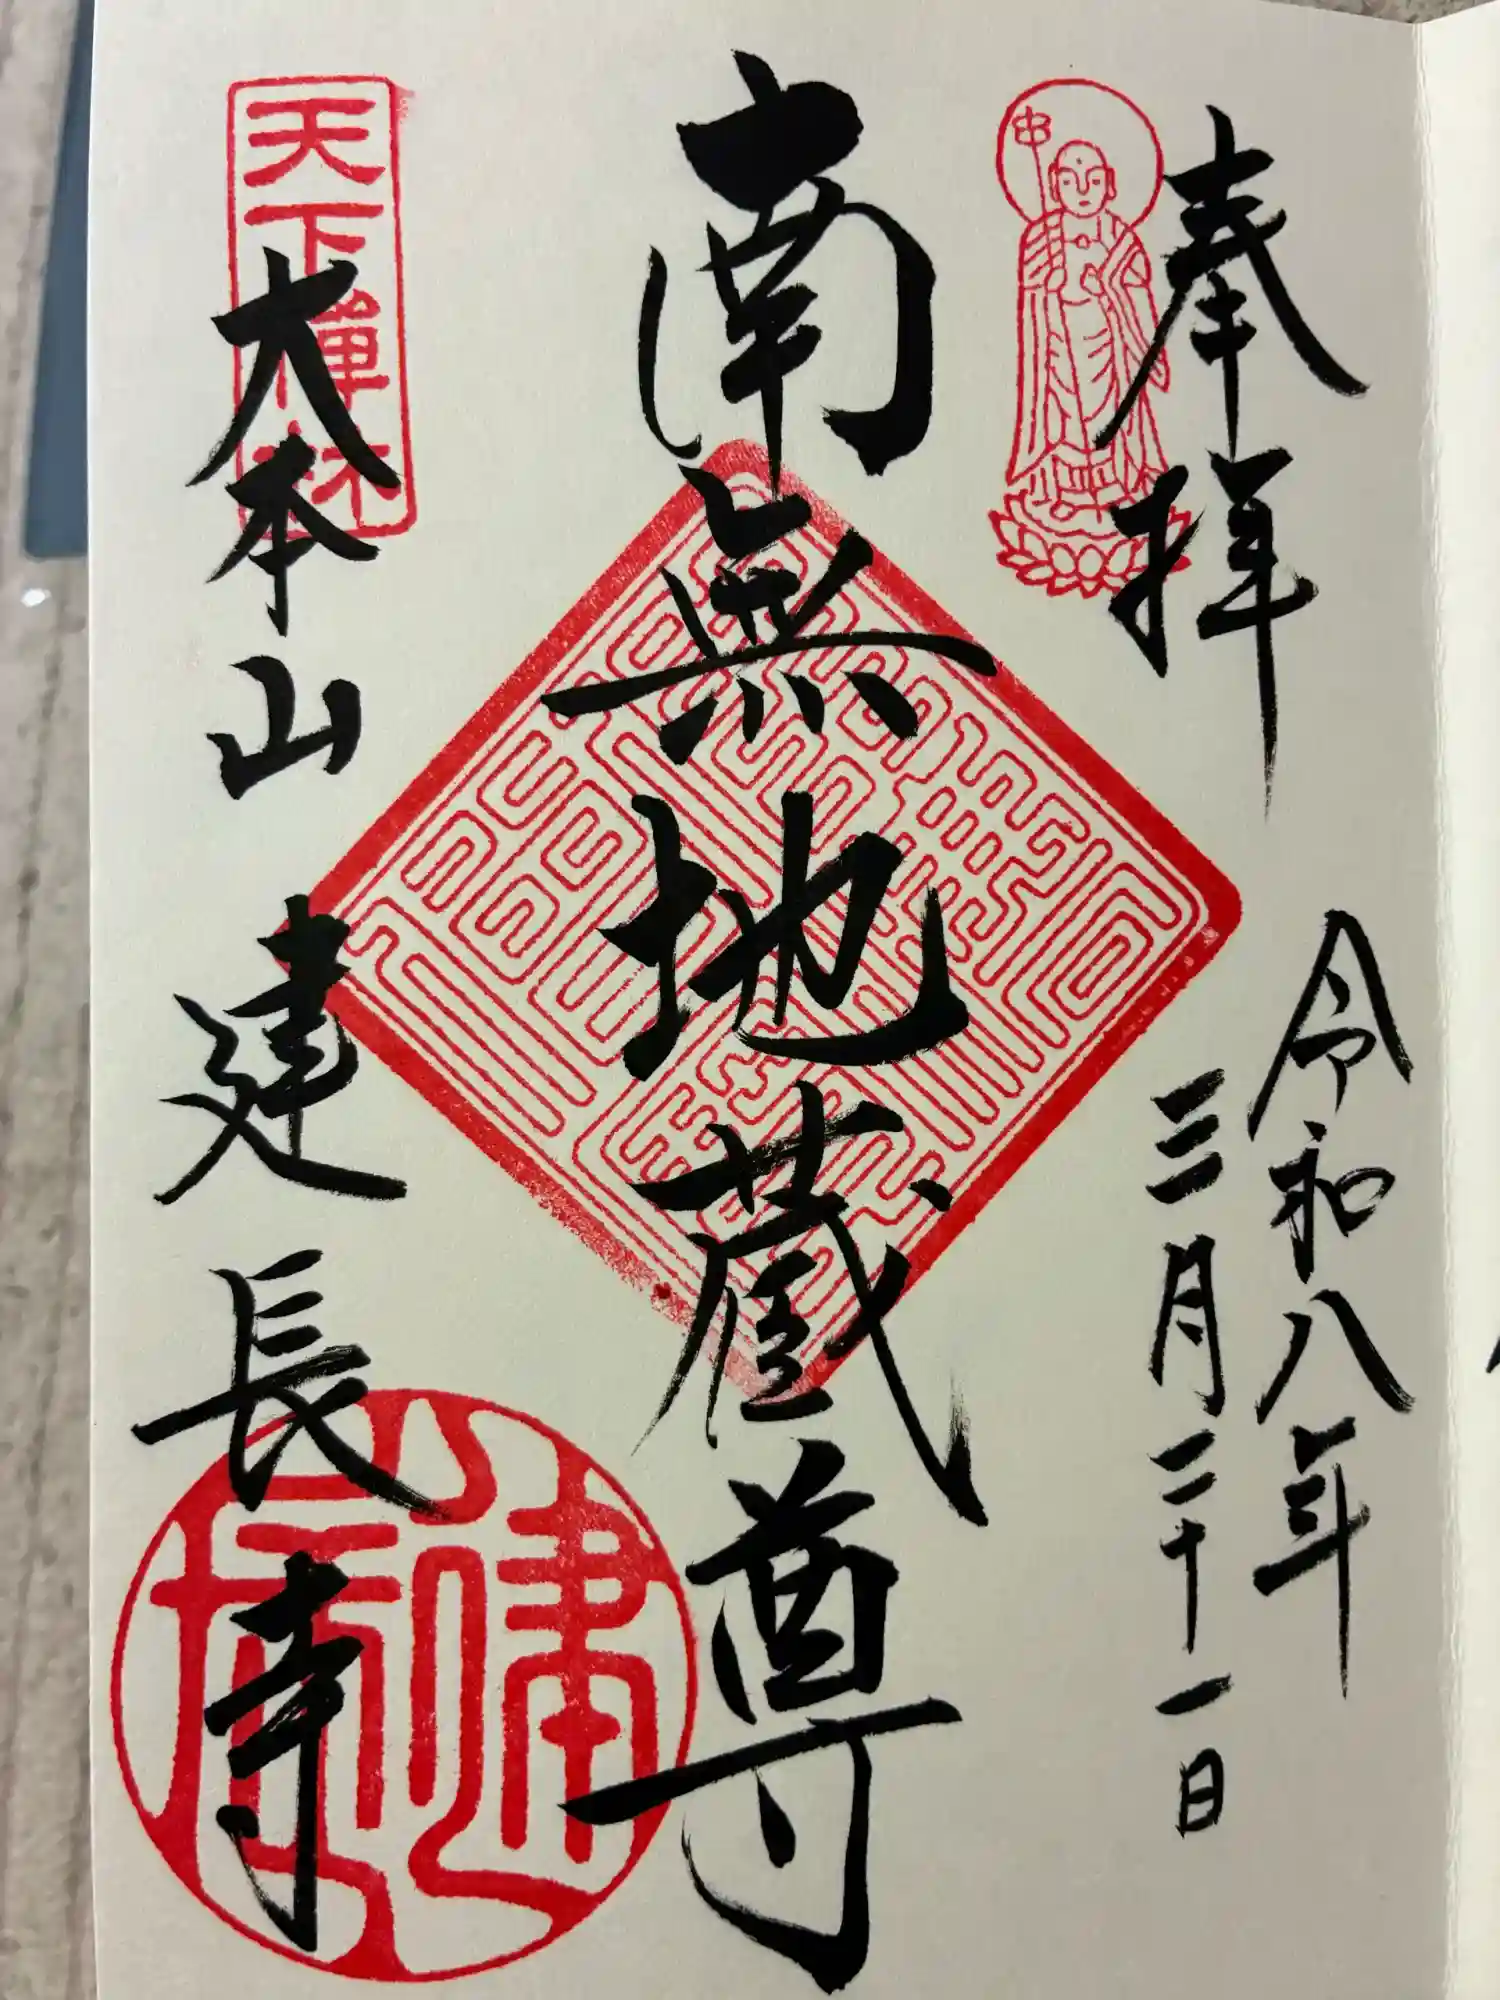 奉拝
令和八年
三月二十一日
南無地蔵尊
天下禅林
大本山建長寺
建長